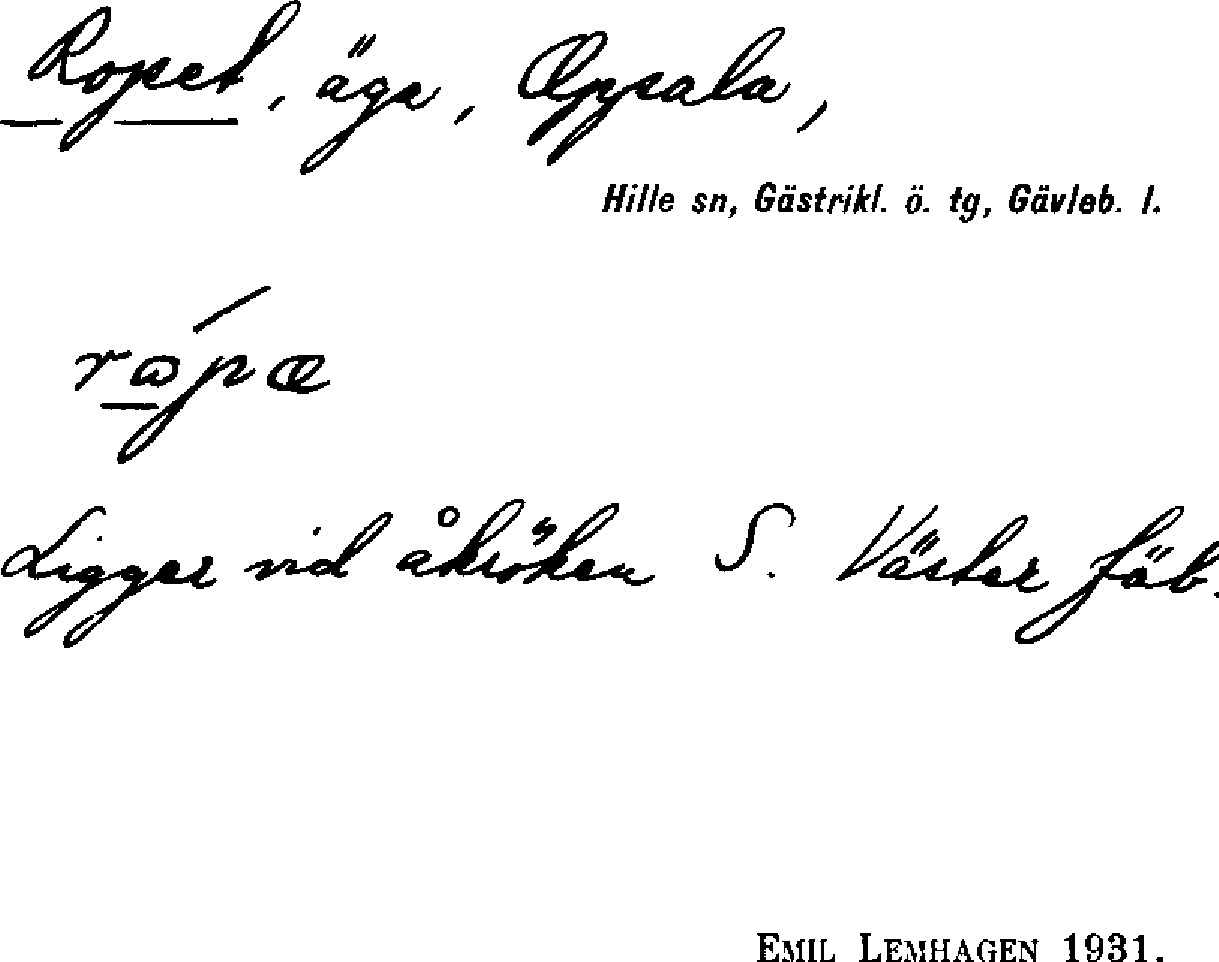 Ropet, äga, Oppsala,
Hille sn, Gästrikl. ö. tg, Gävleb. l.
Ligger vid åkröken S. Väster fäb.
EMIL LEMHAGEN 1931.